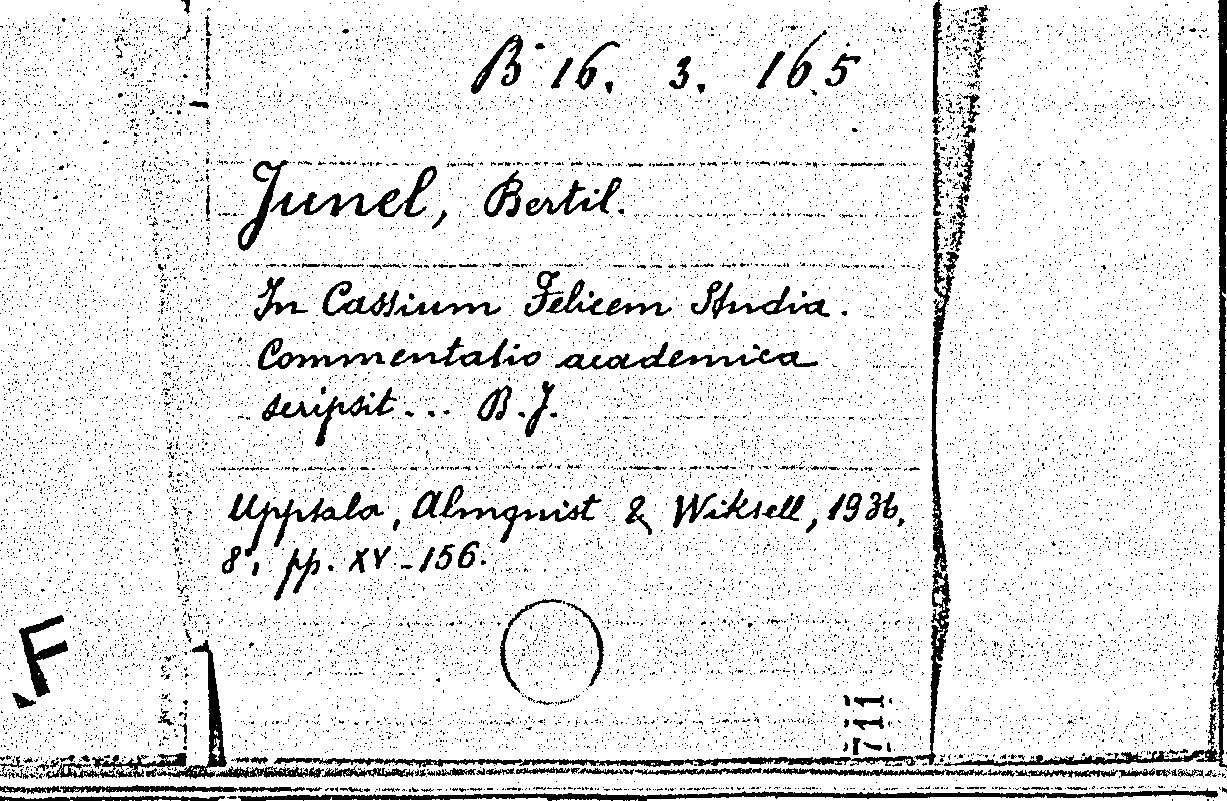 B 16. 3. 165
Junel, Bertil.
In Cassium Felicem Studia.
Commentatio academica
scripsit... B.J.
Uppsala, Almquist & Wiksell, 1936,
8°, pp. XV-156.
F
711